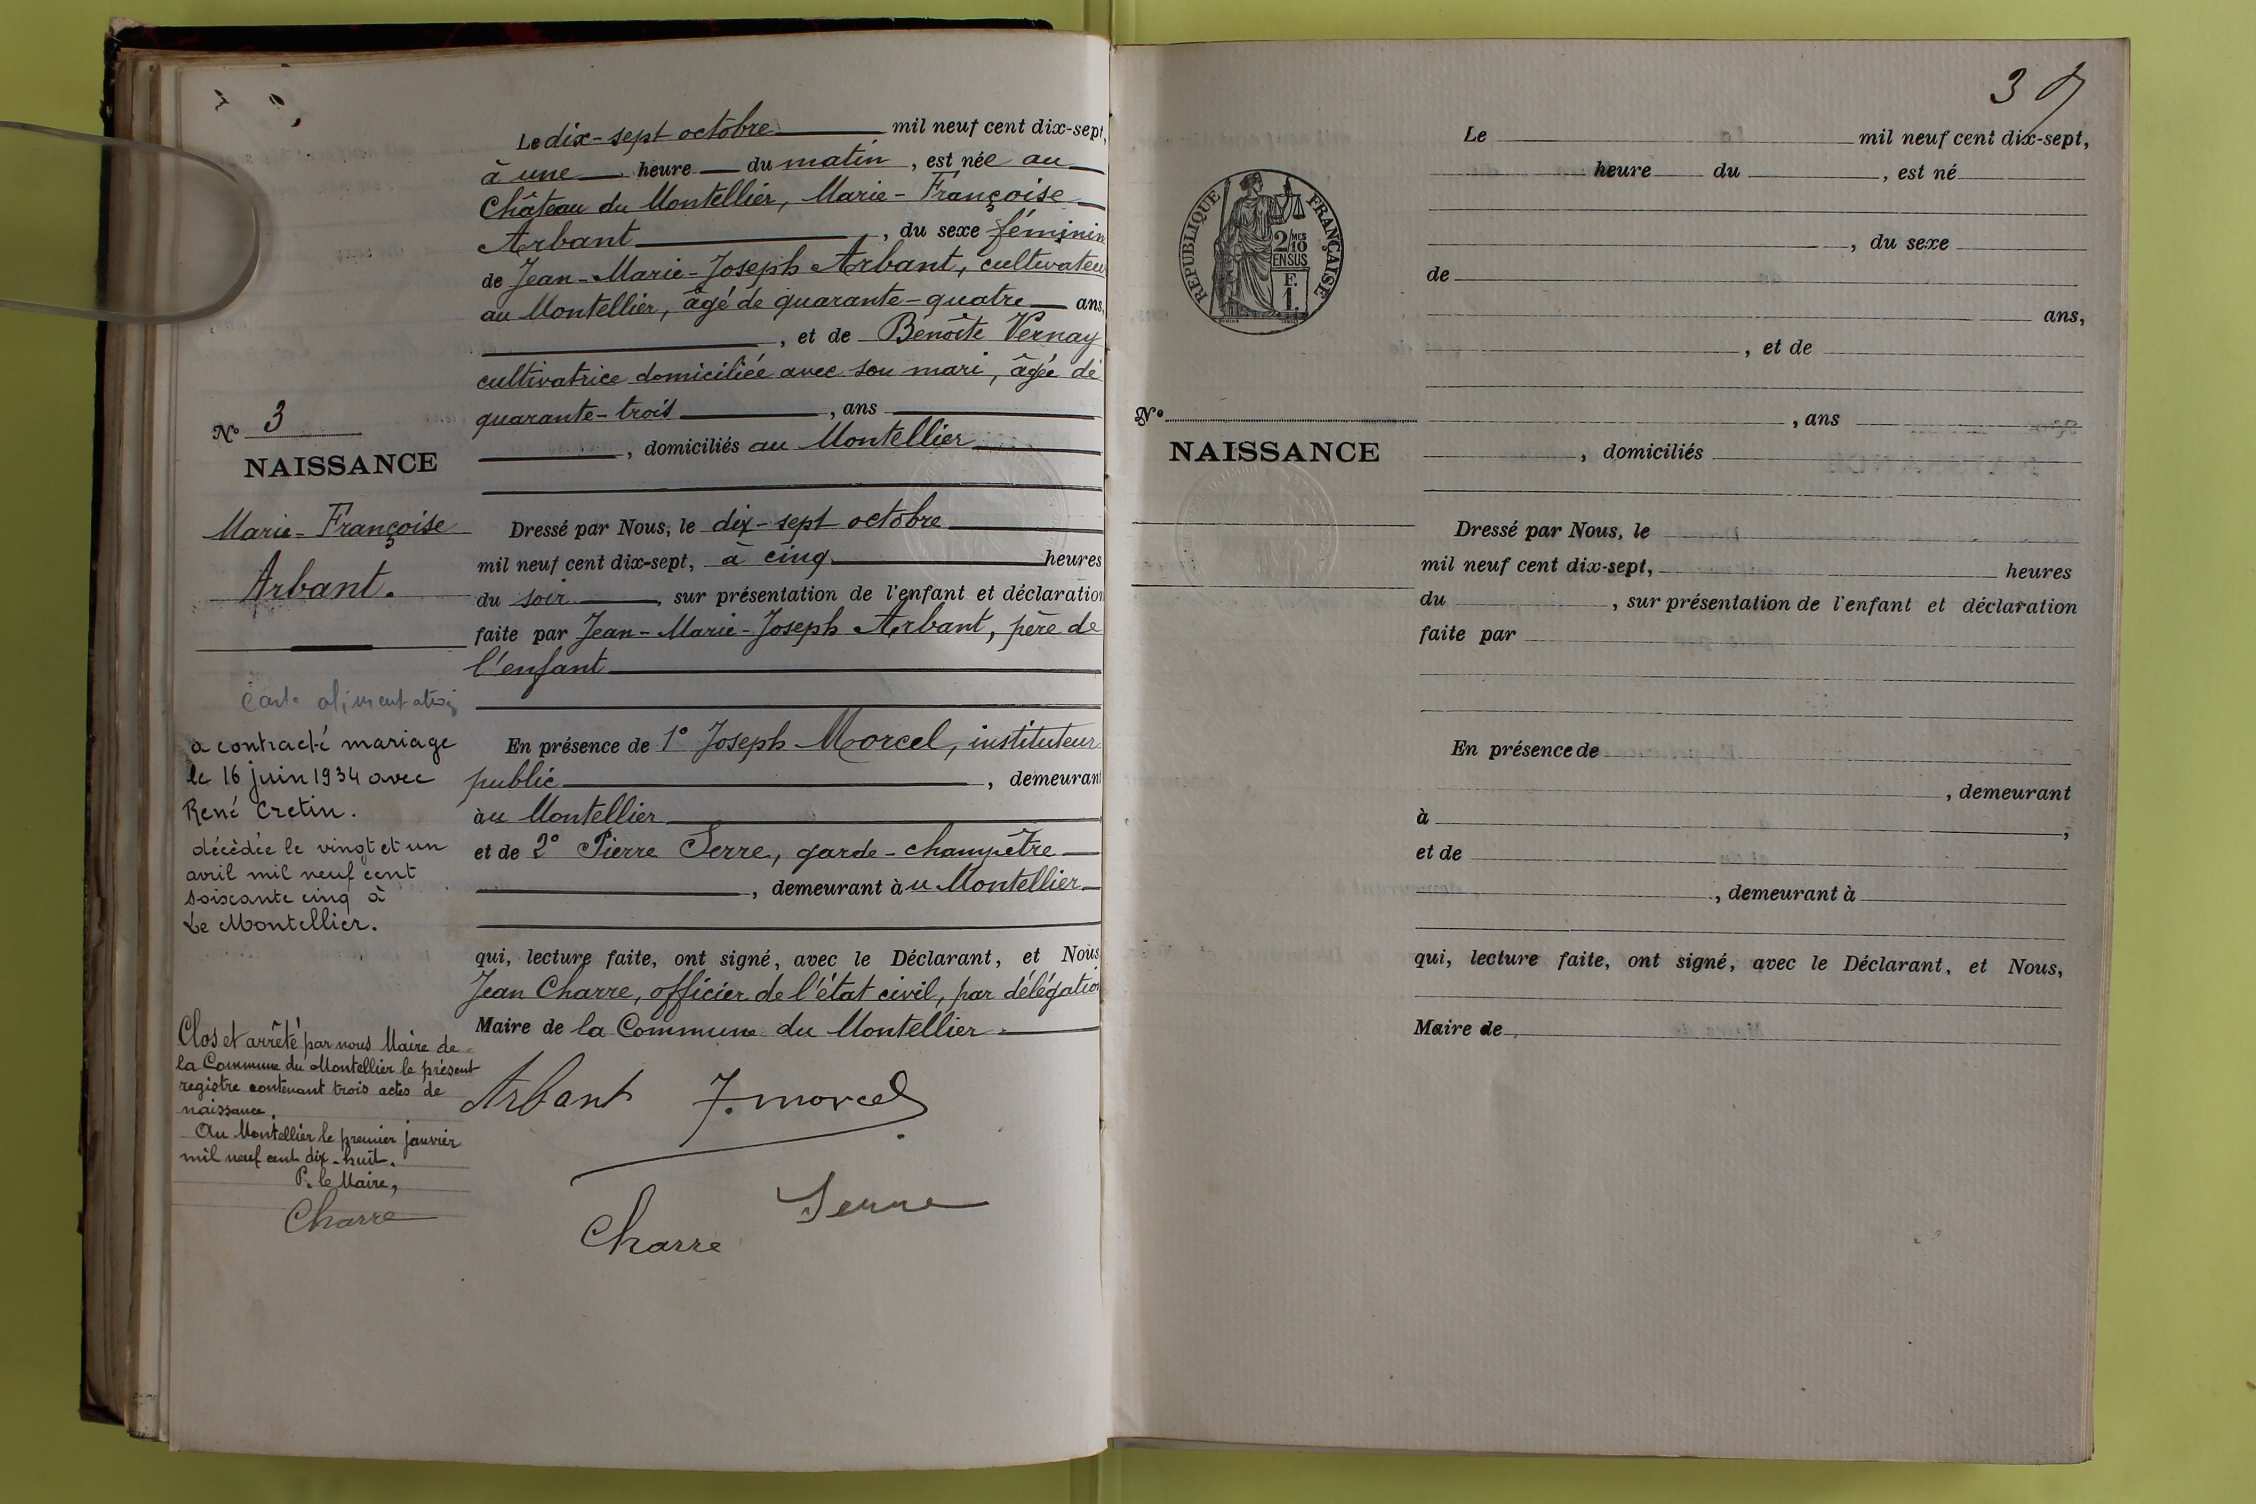 Le dix-sept octobre mil neuf cent dix-sept,
à une heure du matin, est née au
Château du Montellier, Marie-Françoise
Arbant, du sexe féminin
de Jean-Marie-Joseph Arbant, cultivateur
au Montellier, âgé de quarante-quatre ans,
, et de Benoîte Vernay
cultivatrice domiciliée avec son mari, âgée de
quarante-trois, ans
, domiciliés au Montellier
Dressé par Nous, le dix-sept octobre
mil neuf cent dix-sept, à cinq heures
du soir, sur présentation de l'enfant et déclaration
faite par Jean-Marie-Joseph Arbant, père de
l'enfant
En présence de 1° Joseph Morcel, instituteur
public, demeurant
àu Montellier
et de 2° Pierre Serre, garde-champêtre
, demeurant àu Montellier
qui, lecture faite, ont signé, avec le Déclarant, et Nous
Jean Charre, officier de l'état civil, par délégation
Maire de la Commune du Montellier.
Arbant J. Morcel
Serre
Charre
N° 3
NAISSANCE
Marie-Françoise
Arbant.
Carte alimentation
a contracté mariage
le 16 juin 1934 avec
René Cretin.
décédée le vingt et un
avril mil neuf cent
soixante cinq à
Le Montellier.
Clos et arrêté par nous Maire de
la Commune du Montellier le présent
registre contenant trois actes de
naissance.
Au Montellier le premier janvier
mil neuf cent dix-huit.
P. le Maire,
Charre
3
RÉPUBLIQUE FRANÇAISE
2/10MES
EN SUS
F.
1.
N°
NAISSANCE
Le mil neuf cent dix-sept,
heure du , est né
, du sexe
de
ans,
, et de
, ans
, domiciliés
Dressé par Nous, le
mil neuf cent dix-sept, heures
du , sur présentation de l'enfant et déclaration
faite par
En présence de
, demeurant
à ,
et de
, demeurant à
qui, lecture faite, ont signé, avec le Déclarant, et Nous,
Maire de